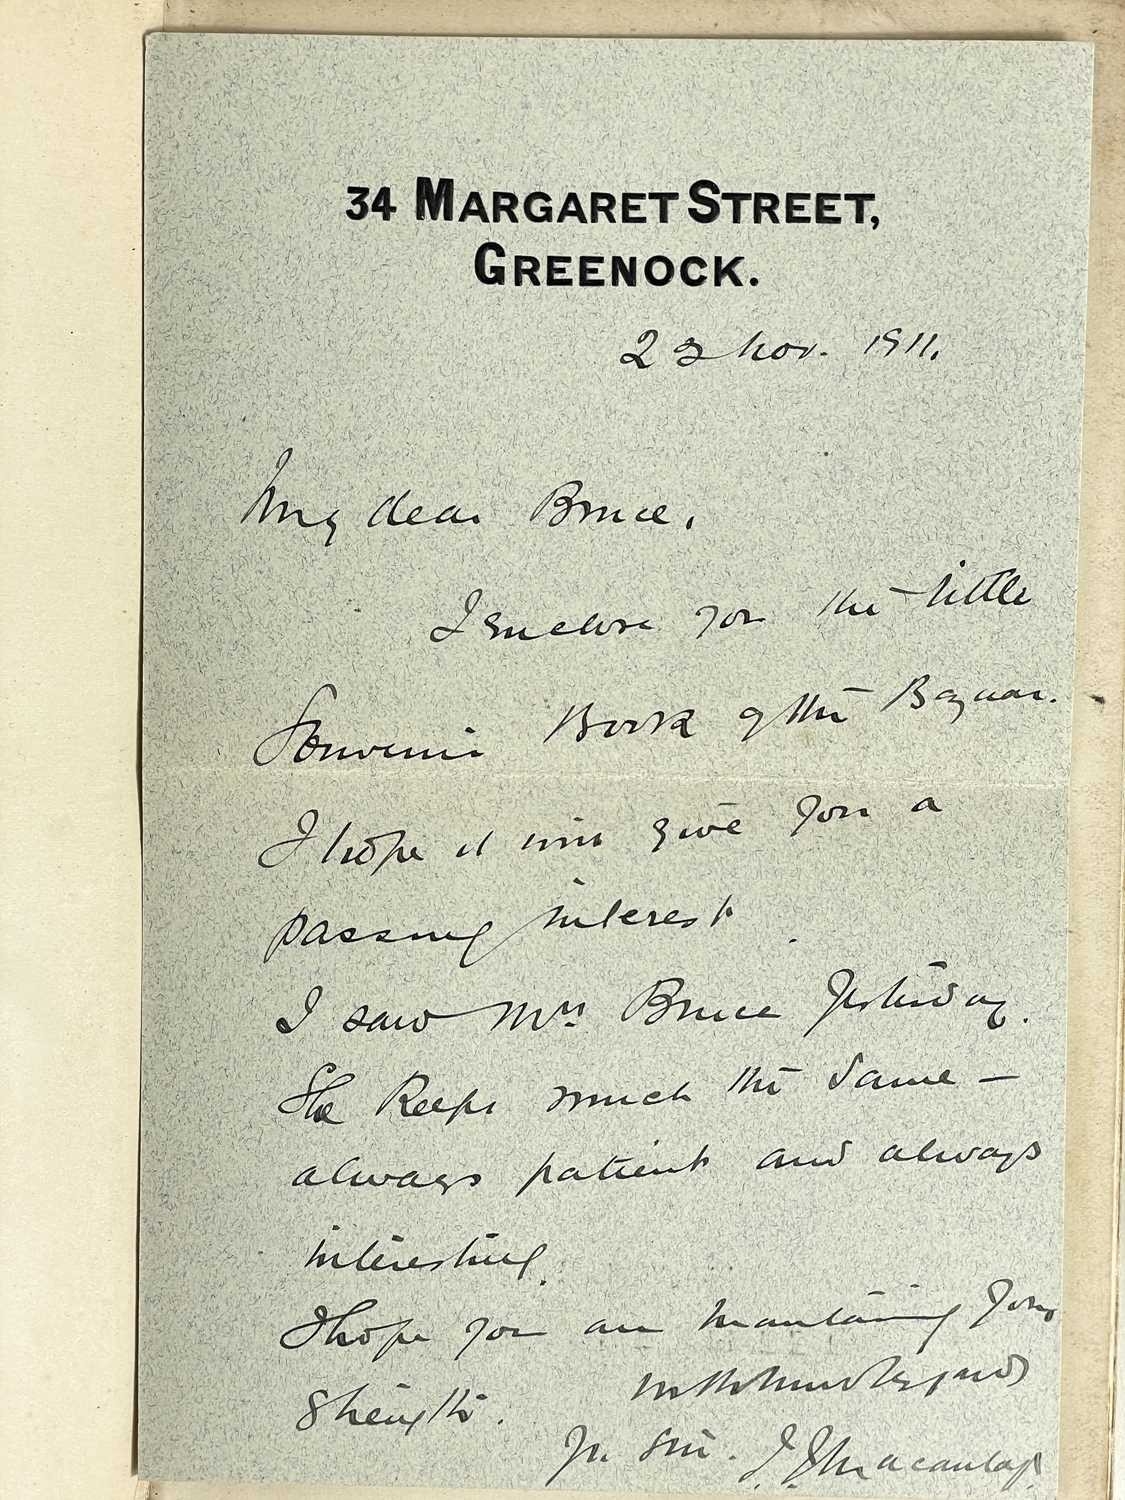 34 MARGARET STREET,
GREENOCK.
23 Nov. 1911.
My dear Bruce,
I enclose for the little
Souvenir Book of the Bazaar.
I hope it will give you a
passing interest.
I saw Mrs Bruce yesterday.
She keeps much the same —
always patient and always
interesting.
I hope you are maintaining your
strength. With kind regards
Yr. Sin. J. J. Macaulay